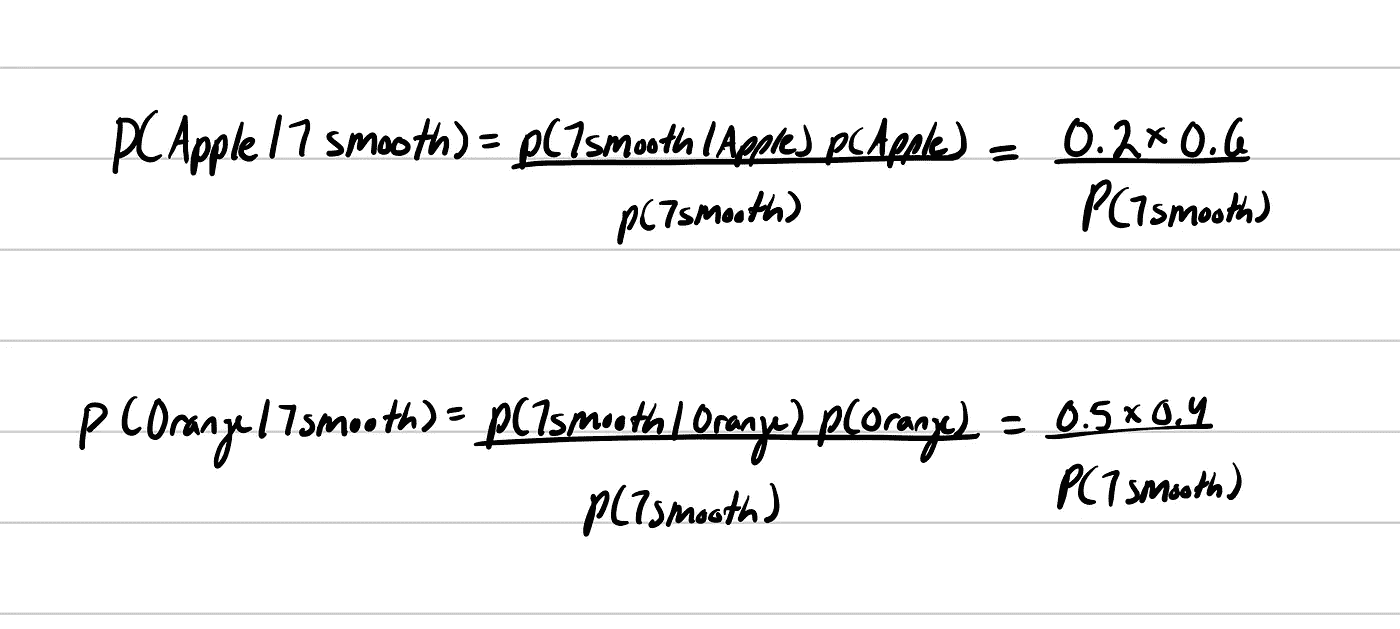 P(Apple/7 smooth) = p(7smooth/Apple) p(Apple) / p(7smooth) = 0.2 × 0.6 / P(7smooth)
P(Orange/7smooth) = p(7smooth/Orange) p(Orange) / p(7smooth) = 0.5 × 0.4 / P(7smooth)